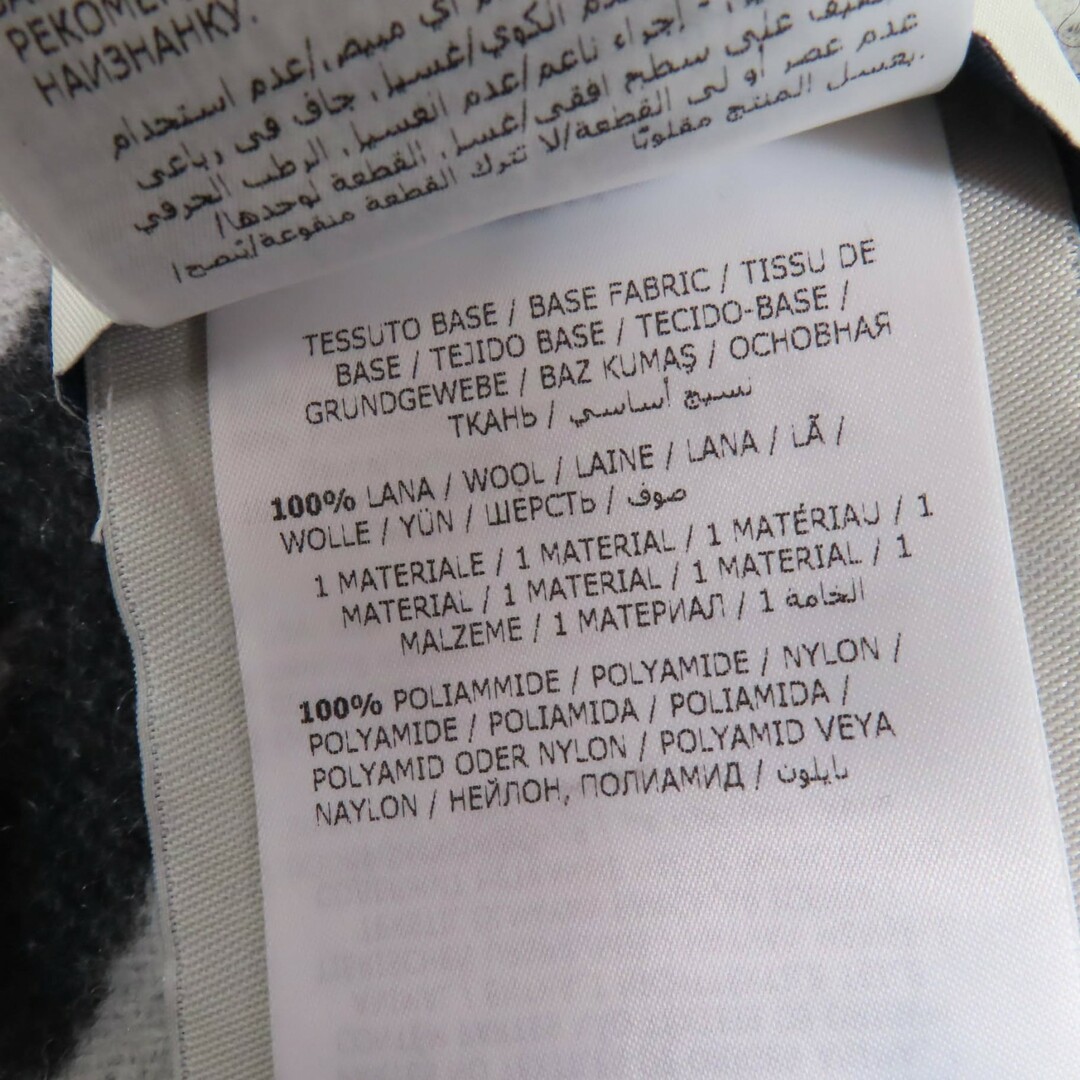 РЕКОМЕН
НАИЗНАНКУ.
أي مبيض/عدم استخدام
الكوي/غسيل جاف في رباعي
إجراء ناعم/عدم الغسيل الرطب الحرفي
على سطح افقي/غسل القطعة لوحدها/
عدم عصر أو لي القطعة/لا تترك القطعة منقوعة/يُنصح
بغسل المنتج مقلوبًا.
TESSUTO BASE / BASE FABRIC / TISSU DE
BASE / TEJIDO BASE / TECIDO-BASE /
GRUNDGEWEBE / BAZ KUMAŞ / ОСНОВНАЯ
ТКАНЬ / نسيج أساسي
100% LANA / WOOL / LAINE / LANA / LÃ /
WOLLE / YÜN / ШЕРСТЬ / صوف
1 MATERIALE / 1 MATERIAL / 1 MATÉRIAU / 1
MATERIAL / 1 MATERIAL / 1 MATERIAL / 1
MALZEME / 1 МАТЕРИАЛ / 1 الخامة
100% POLIAMMIDE / POLYAMIDE / NYLON /
POLYAMIDE / POLIAMIDA / POLIAMIDA /
POLYAMID ODER NYLON / POLYAMID VEYA
NAYLON / НЕЙЛОН, ПОЛИАМИД / نايلون